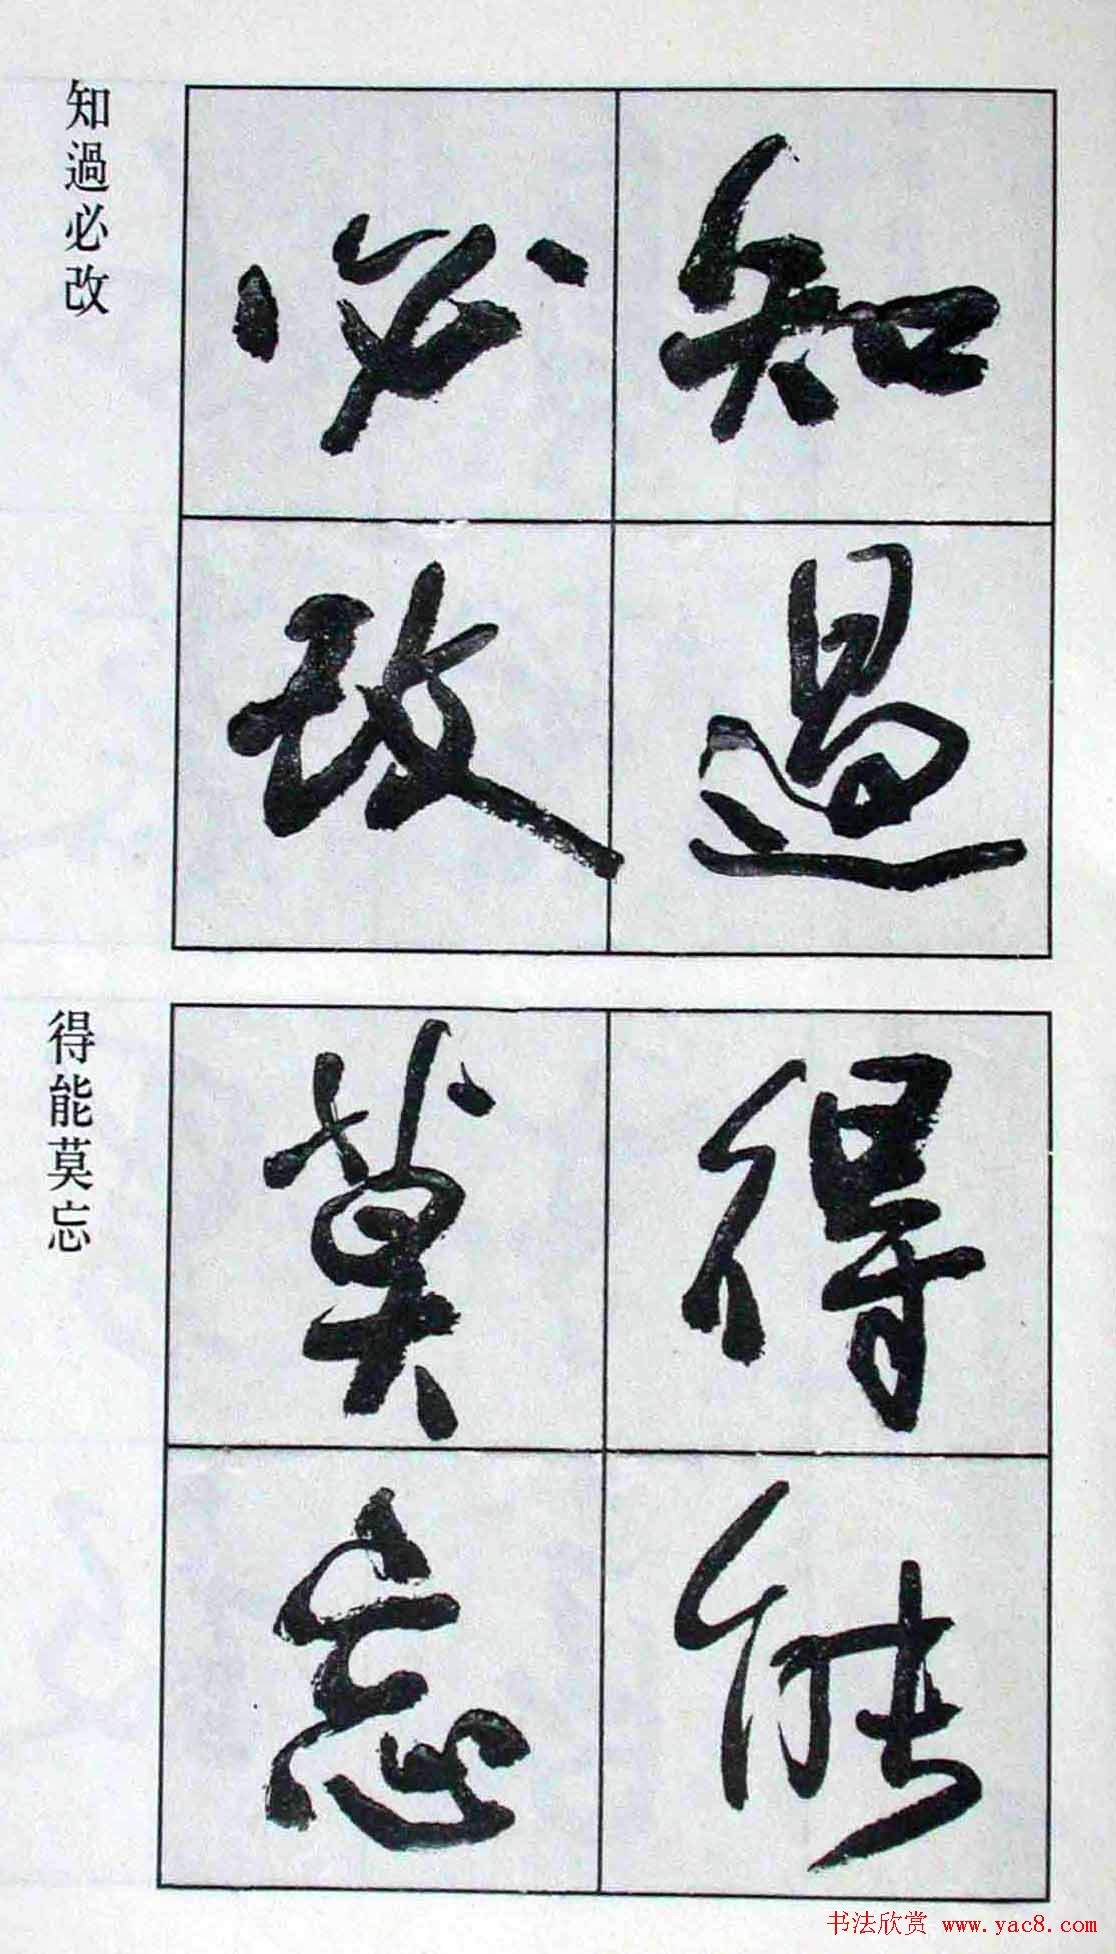 知過必改
知過
必改
得能莫忘
得能
莫忘
书法欣赏 www.yac8.com